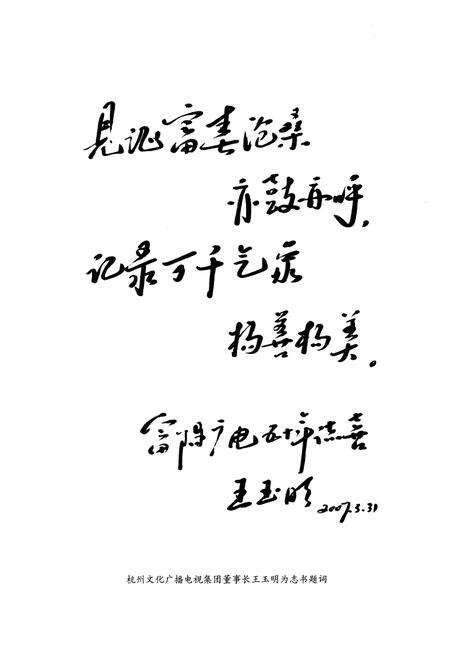 见证富春沧桑
亦鼓亦呼，
记录万千气象
扬善扬美。
富阳广电五十年志喜
王玉明 2007.3.31
杭州文化广播电视集团董事长王玉明为志书题词